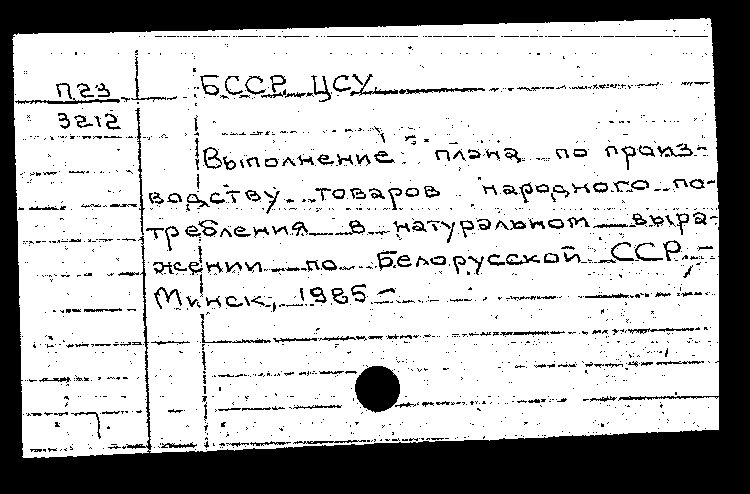 П23
3212
БССР. ЦСУ.
Выполнение плана по произ-
водству товаров народного по-
требления в натуральном выра-
жении по Белорусской ССР. -
Минск, 1985 -